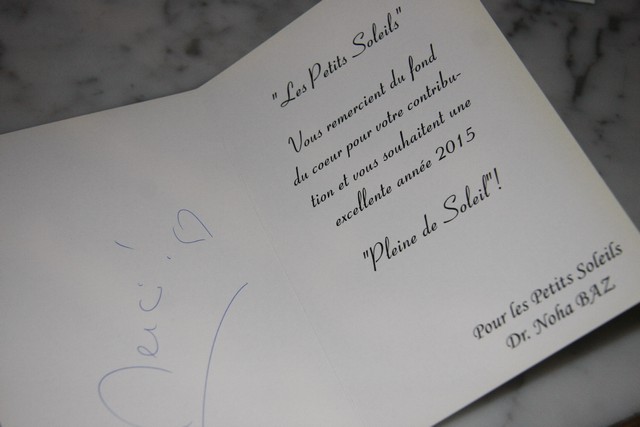 "Les Petits Soleils"
Vous remercient du fond
du coeur pour votre contribu-
tion et vous souhaitent une
excellente année 2015
"Pleine de Soleil"!
Pour les Petits Soleils
Dr. Noha BAZ
Merci!